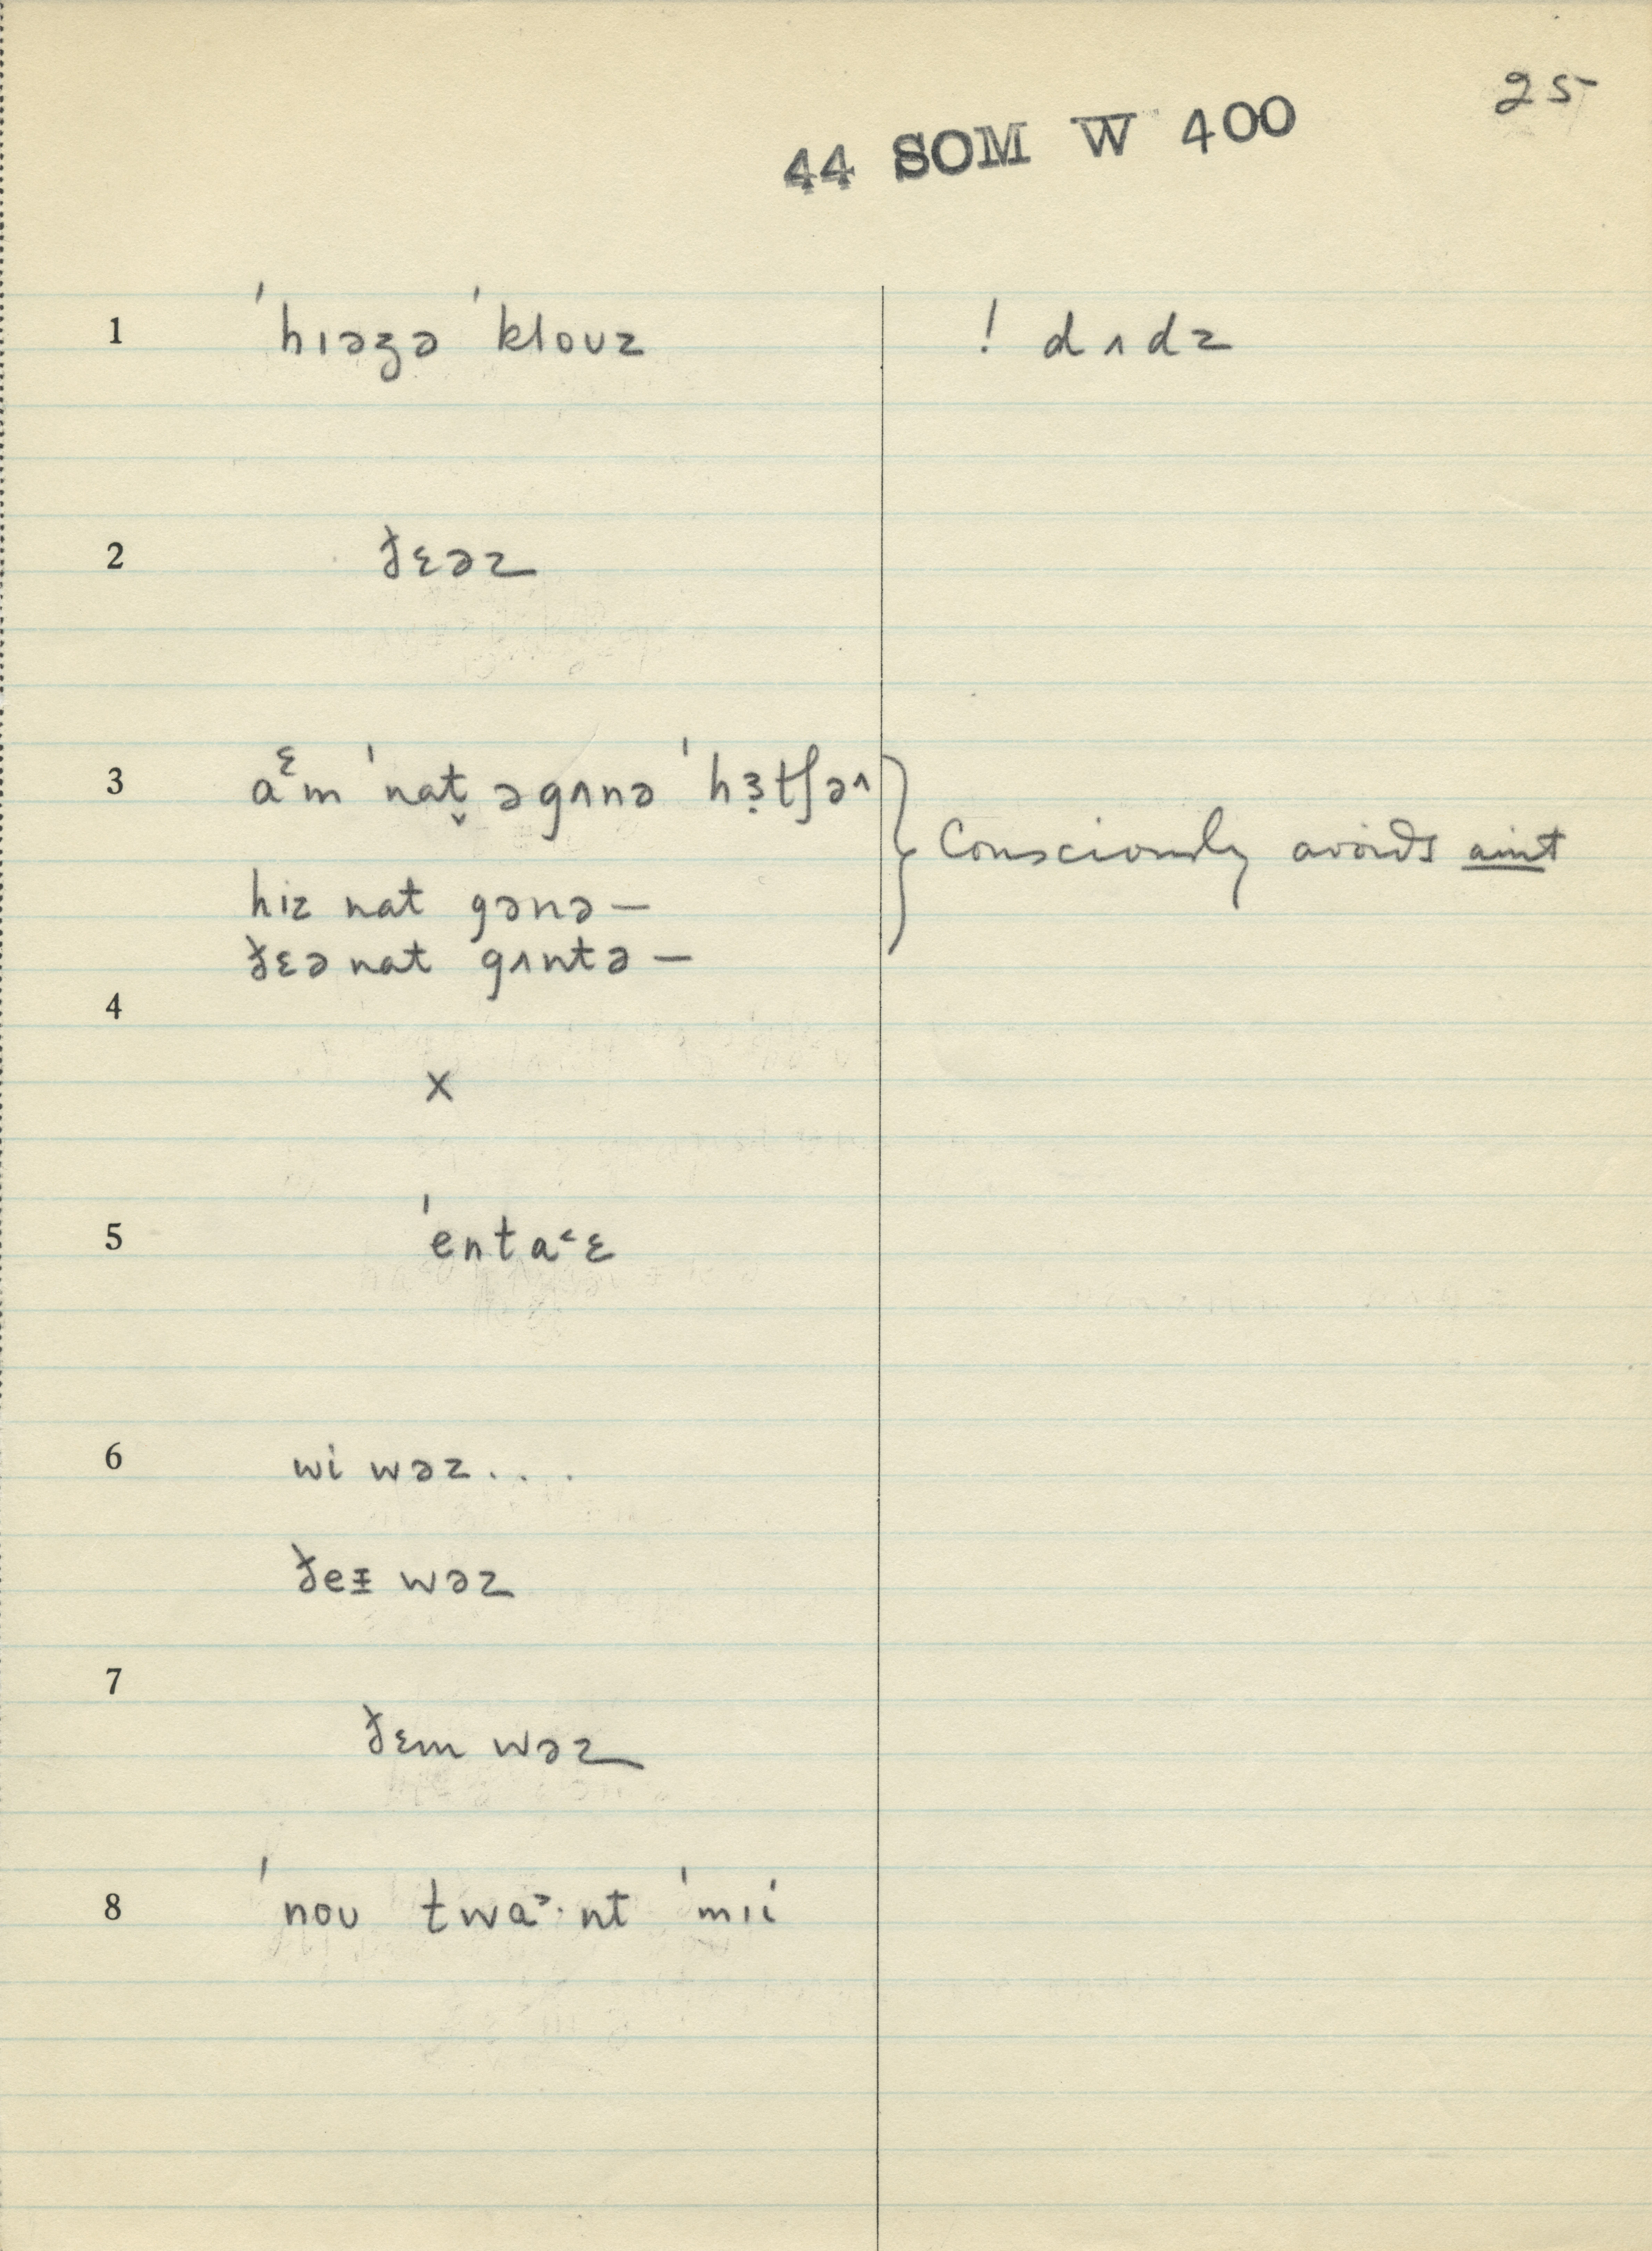 25
44 SOM W 400
1 ˈhɪəzə ˈkloʊz ! dʌdz
2 ðɛəz
3 aᵋm ˈnat̬ əgʌnə ˈhɜ̣tʃə˄
Consciously avoids aint
hiz nat gənə —
ðɛə nat gʌntə —
4
x
5 ˈenta˂ɛ
6 wi wəz . . .
ðeɪ wəz
7
ðɛm wəz
8 ˈnoʊ twɑ˃·nt ˈmɪi